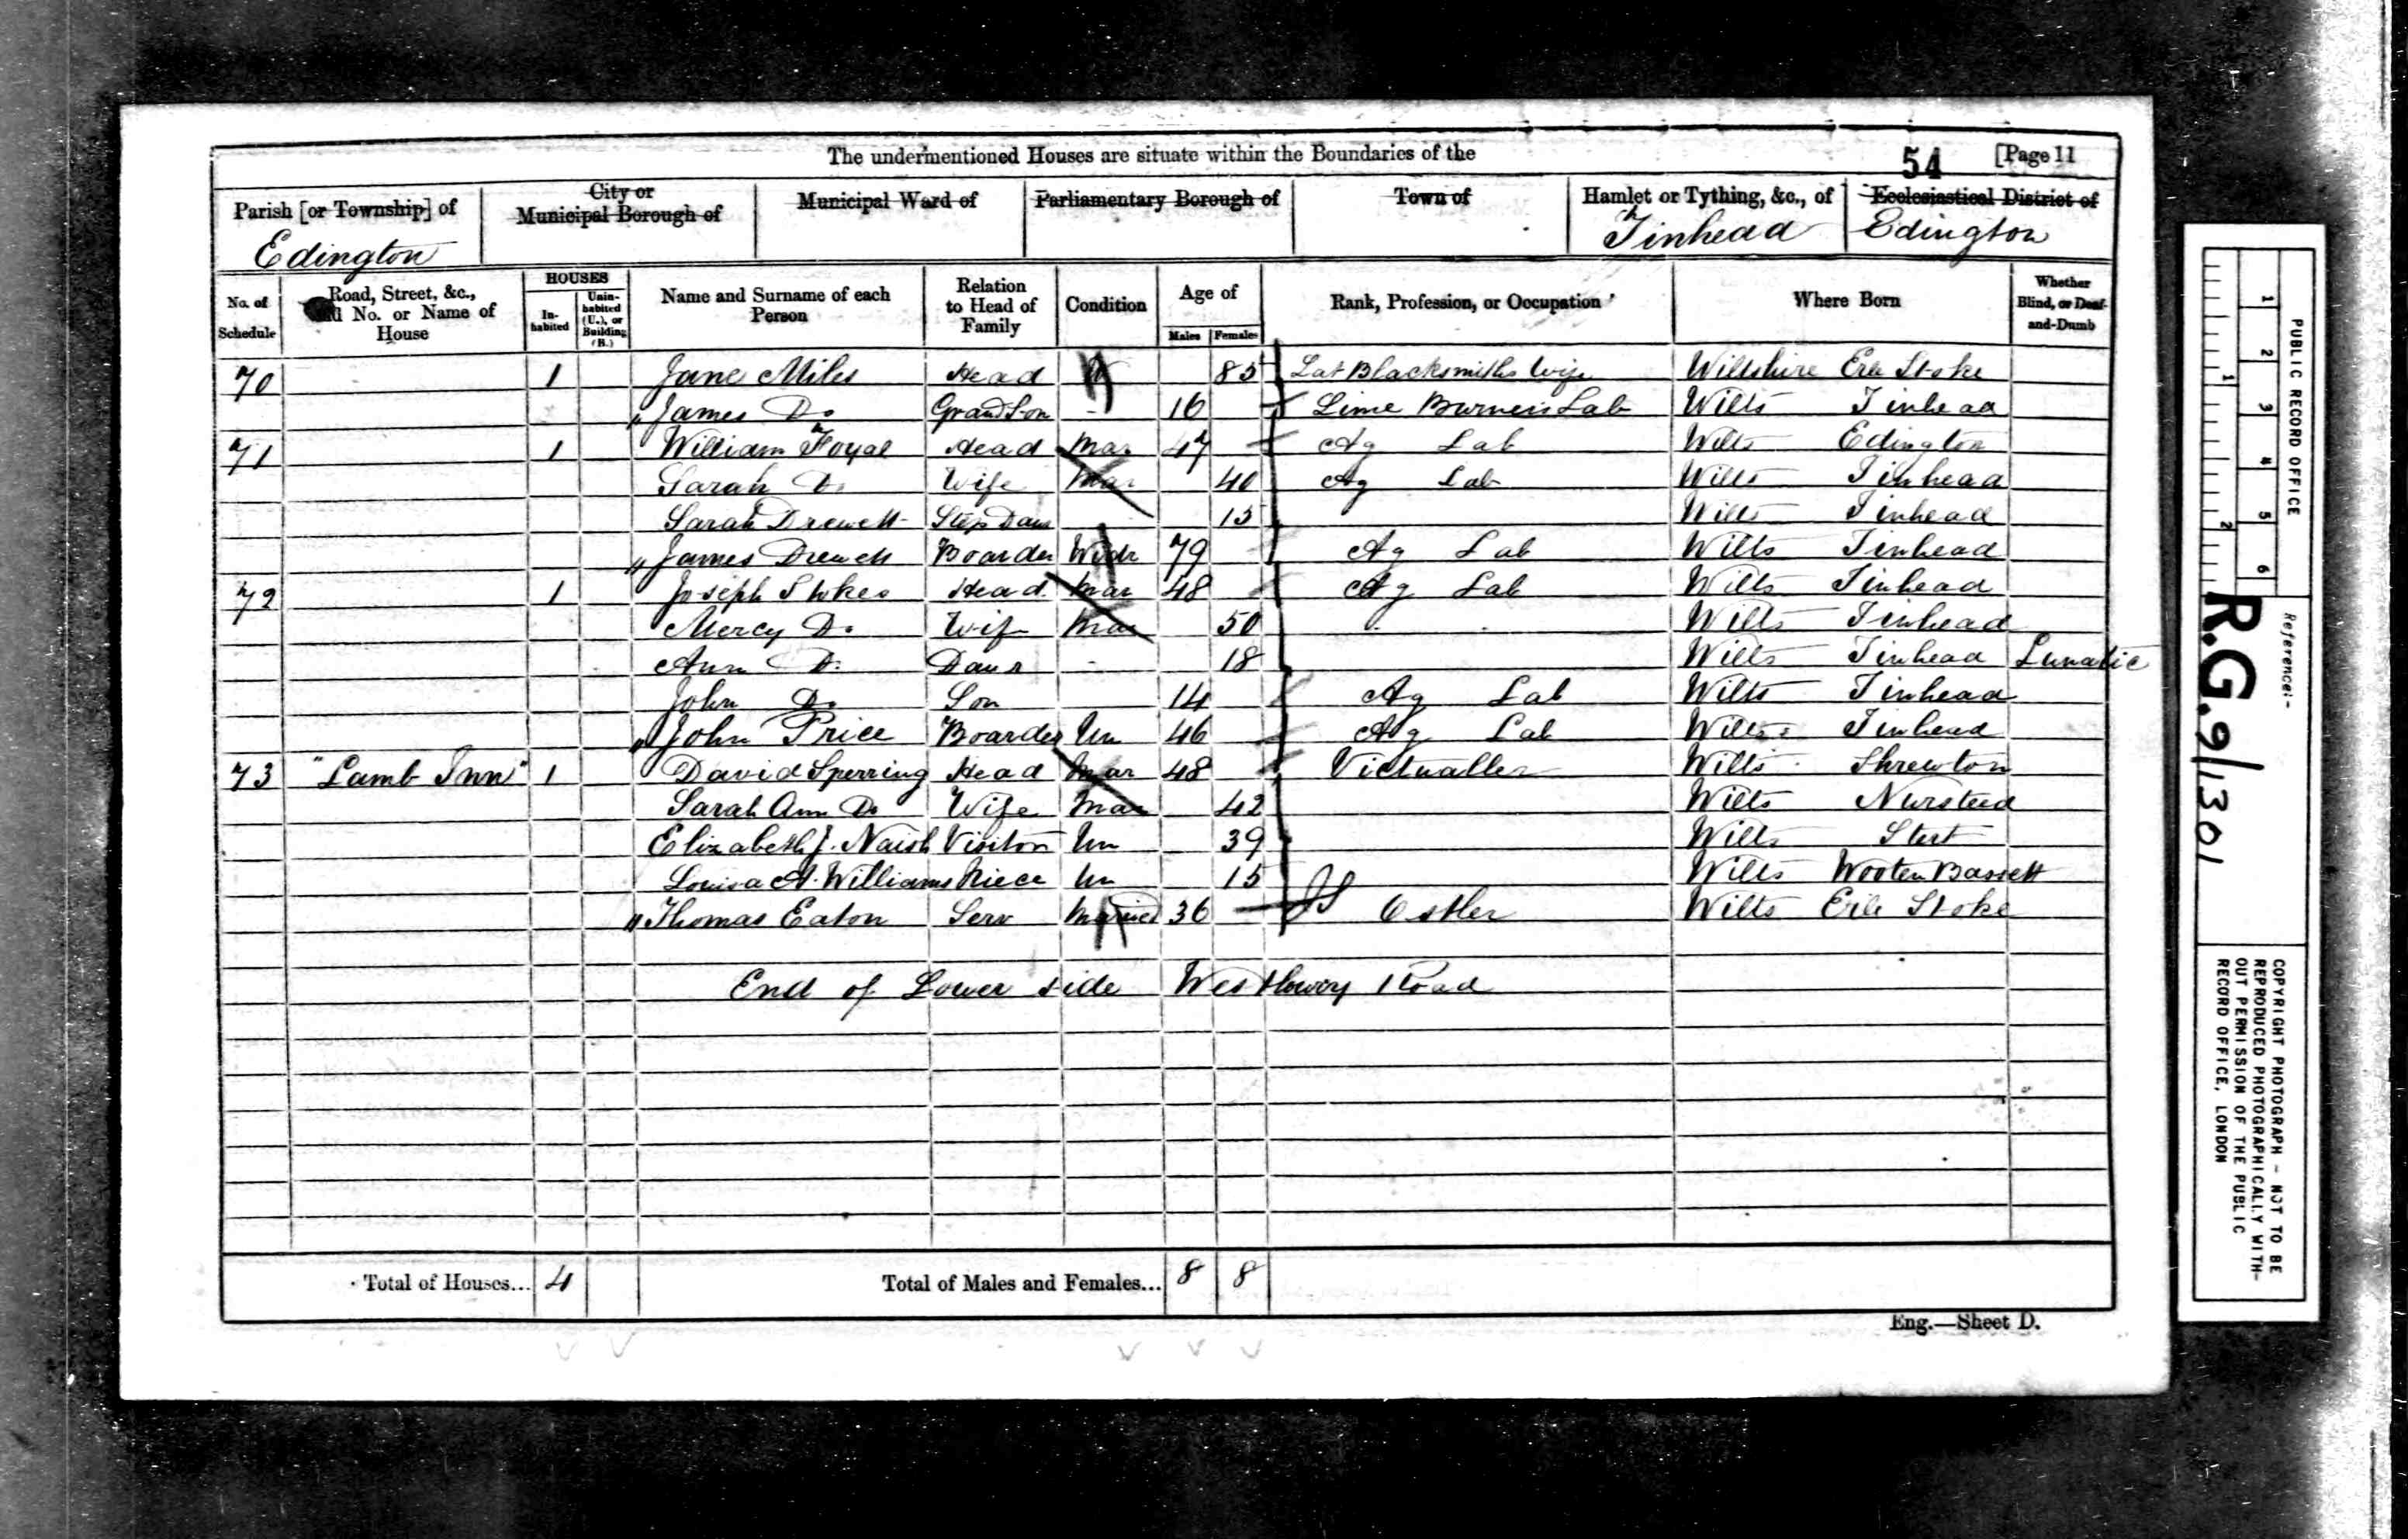 The undermentioned Houses are situate within the Boundaries of the
54 [Page 11
Parish [or Township] of
City or Municipal Borough of
Municipal Ward of
Parliamentary Borough of
Town of
Hamlet or Tything, &c., of
Ecclesiastical District of
Edington
Tinhead
Edington
No. of Schedule
Road, Street, &c., and No. or Name of House
HOUSES
In-habited
Unin-habited (U.), or Building (B.)
Name and Surname of each Person
Relation to Head of Family
Condition
Age of
Males
Females
Rank, Profession, or Occupation
Where Born
Whether Blind, or Deaf-and-Dumb
70 1 Jane Miles Head 85 Lat Blacksmiths Wife Wiltshire Erle Stoke
James Do Grand Son - 16 Lime Burners Lab Wilts Tinhead
71 1 William Foyal Head Mar 47 Ag Lab Wilts Edington
Sarah Do Wife Mar 40 Ag Lab Wilts Tinhead
Sarah Drewett Step Daur 15 Wilts Tinhead
James Drewett Boarder Widr 79 Ag Lab Wilts Tinhead
72 1 Joseph Stokes Head Mar 48 Ag Lab Wilts Tinhead
Mercy Do Wife Mar 50 Wilts Tinhead
Ann Do Daur - 18 Wilts Tinhead Lunatic
John Do Son 14 Ag Lab Wilts Tinhead
John Price Boarder Un 46 Ag Lab Wilts Tinhead
73 "Lamb Inn" 1 David Sperring Head Mar 48 Victualler Wilts Shrewton
Sarah Ann Do Wife Mar 42 Wilts Nursteed
Elizabeth J. Naish Visitor Un 39 Wilts Stert
Louisa A. Williams Niece Un 15 Wilts Wooten Bassett
Thomas Eaton Serv Married 36 Ostler Wilts Erle Stoke
End of Lower side Westbury Road
Total of Houses... 4
Total of Males and Females... 8 8
Eng.—Sheet D.
PUBLIC RECORD OFFICE
1 2 3 4 5 6
1 2
Reference:-
R.G. 9/1301
COPYRIGHT PHOTOGRAPH - NOT TO BE
REPRODUCED PHOTOGRAPHICALLY WITH-
OUT PERMISSION OF THE PUBLIC
RECORD OFFICE, LONDON